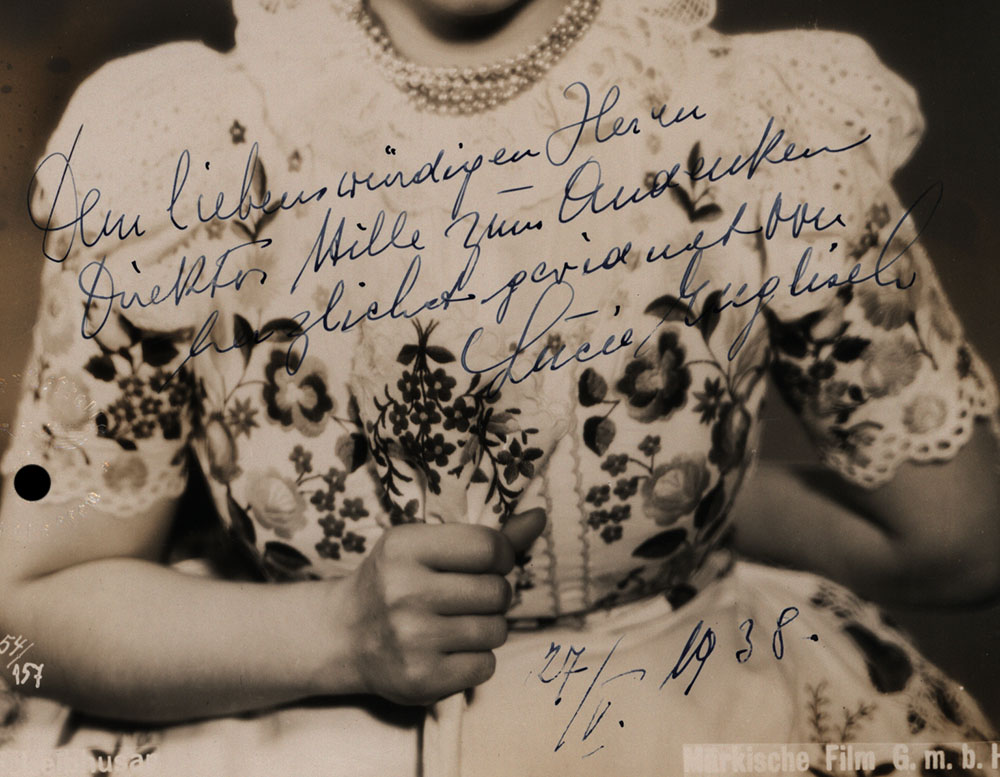 Dem liebenswürdigen Herrn
Direktor Hille zum Andenken
herzlichst gewidmet von
Lucie Englisch
54/157
27/V. 1938.
Märkische Film G. m. b. H